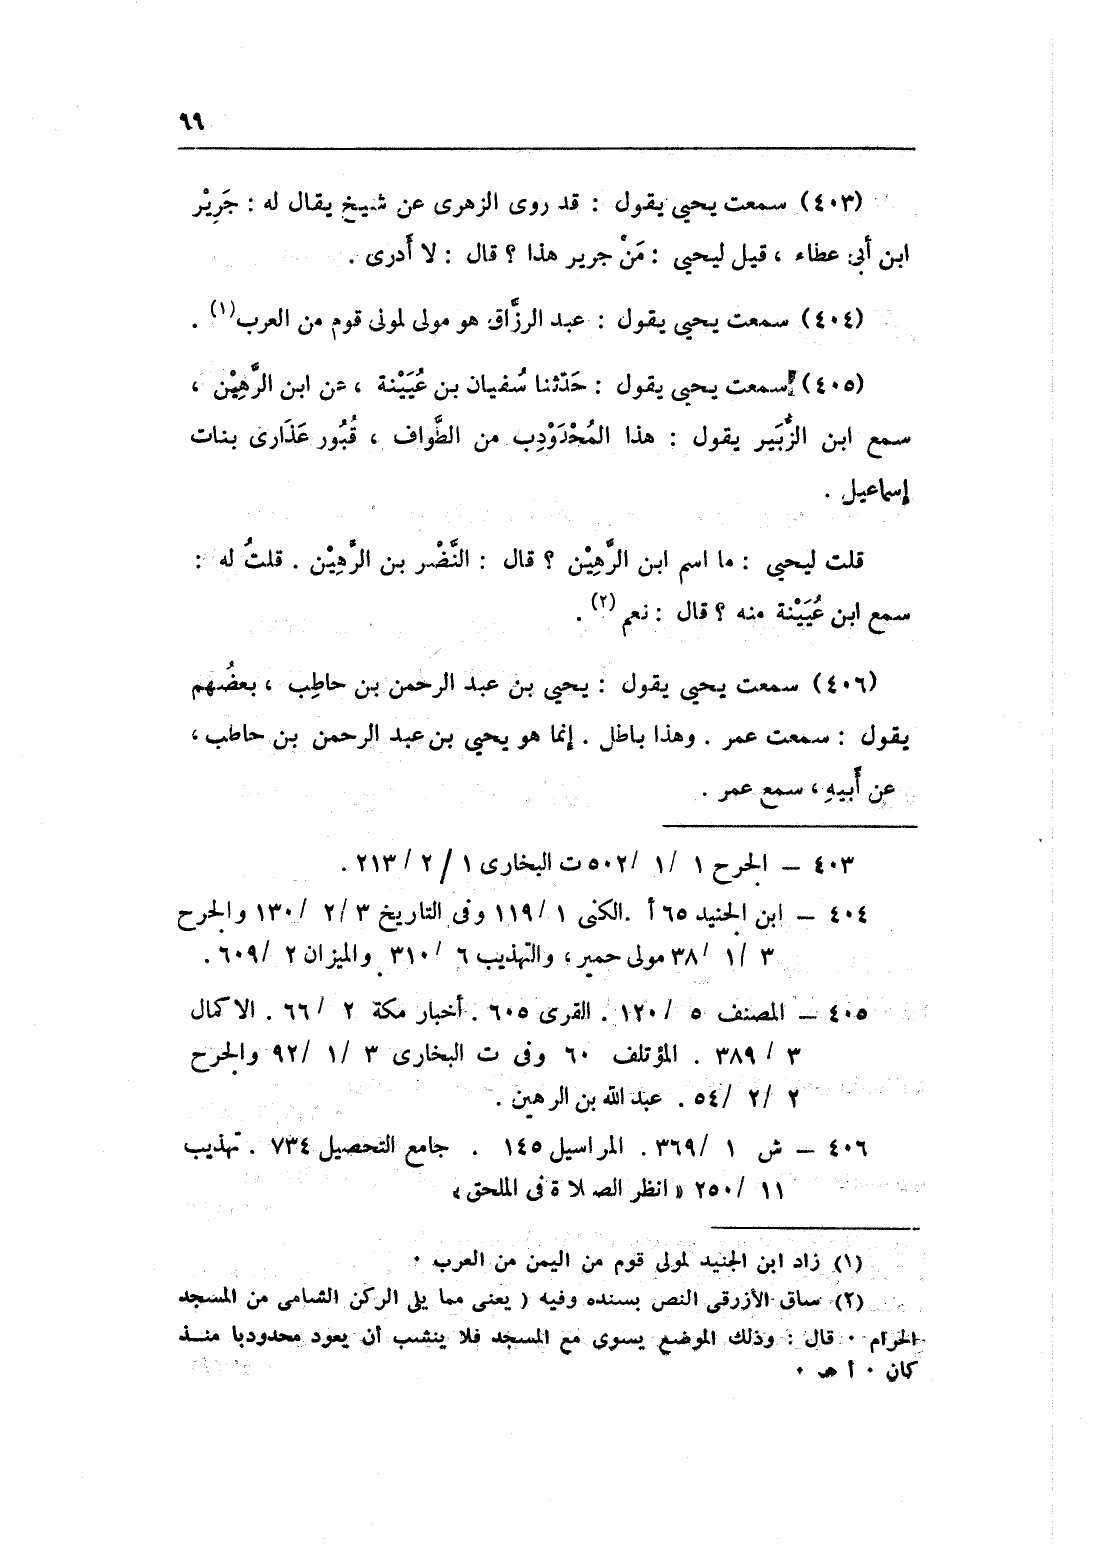 ٦٩
(٤٠٣) سمعت يحيى يقول : قد روى الزهرى عن شيخ يقال له : جَرِيْر
ابن أبى عطاء ، قيل ليحيى : مَنْ جرير هذا ؟ قال : لا أَدرى .
(٤٠٤) سمعت يحيى يقول : عبد الرزَّاق هو مولى لمولى قوم من العرب(١) .
(٤٠٥) سمعت يحيى يقول : حَدّثنا سُفيان بن عُيَيْنة ، عن ابن الرَّهِيْن ،
سمع ابن الزُّبَير يقول : هذا المُحْدَوْدِب من الطَّواف ، قُبُور عَذَارى بنات
إسماعيل .
قلت ليحيى : ما اسم ابن الرَّهِيْن ؟ قال : النَّضْر بن الرَّهِيْن . قلتُ له :
سمع ابن عُيَيْنة منه ؟ قال : نعم (٢) .
(٤٠٦) سمعت يحيى يقول : يحيى بن عبد الرحمن بن حاطِب ، بعضُهم
يقول : سمعت عمر . وهذا باطل . إنما هو يحيى بن عبد الرحمن بن حاطب ،
عن أَبيهِ ، سمع عمر .
٤٠٣ – الجرح ١ / ١ / ٥٠٢ ت البخارى ١ / ٢ / ٢١٣ .
٤٠٤ – ابن الجنيد ٦٥ أ . الكنى ١ / ١١٩ وفى التاريخ ٣ / ٢ / ١٣٠ والجرح
٣ / ١ / ٣٨ مولى حمير ، والتهذيب ٦ / ٣١٠ والميزان ٢ / ٦٠٩ .
٤٠٥ – المصنف ٥ / ١٢٠ . القرى ٦٠٥ . أخبار مكة ٢ / ٦٦ . الاكمال
٣ / ٣٨٩ . المؤتلف ٦٠ وفى ت البخارى ٣ / ١ / ٩٢ والجرح
٢ / ٢ / ٥٤ . عبد الله بن الرهين .
٤٠٦ – ش ١ / ٣٦٩ . المراسيل ١٤٥ . جامع التحصيل ٧٣٤ . تهذيب
١١ / ٢٥٠ « انظر الصلاة فى الملحق »
(١) زاد ابن الجنيد لمولى قوم من اليمن من العرب ٠
(٢) ساق الأزرقى النص بسنده وفيه ( يعنى مما يلى الركن الشامى من المسجد
الحرام ٠ قال : وذلك الموضع يسوى مع المسجد فلا ينشب أن يعود محدودبا منذ
كان ٠ أ هـ ٠